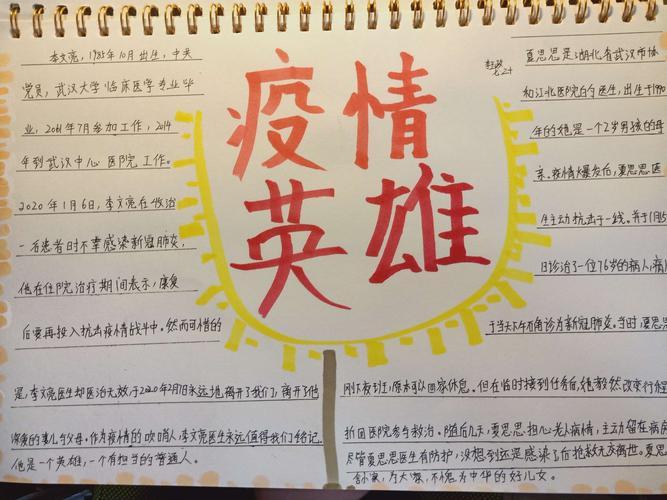 李文亮,1985年10月出生,中共
党员,武汉大学临床医学专业毕
业,2011年7月参加工作,2014
年到武汉中心医院工作。
2020年1月6日,李文亮在收治
一名患者时不幸感染新冠肺炎,
他在住院治疗期间表示,康复
后要再投入抗击疫情战斗中。然而可惜的
是,李文亮医生却医治无效,于2020年2月7日永远地离开了我们,离开了他
深爱的妻儿与父母。作为疫情的吹哨人,李文亮医生永远值得我们铭记。
他是一个英雄,一个有担当的普通人。
疫情
英雄
夏思思是湖北省武汉市协
和江北医院的医生,出生于1990
年的她是一个2岁男孩的母
亲。疫情大爆发后,夏思思医
生主动抗击于一线。并于1月15
日诊治了一位76岁的病人,病
于当天下午确诊为新冠肺炎。当时,夏思思
刚下夜班,原本可以回家休息。但在临时接到任务后,她毅然改变行程
折回医院参与救治。随后几天,夏思思担心老人病情,主动留在病房
尽管夏思思医生有防护,没想到还是感染了后抢救无效离世。夏思
舍小家,为大家,不愧为中华的好儿女。